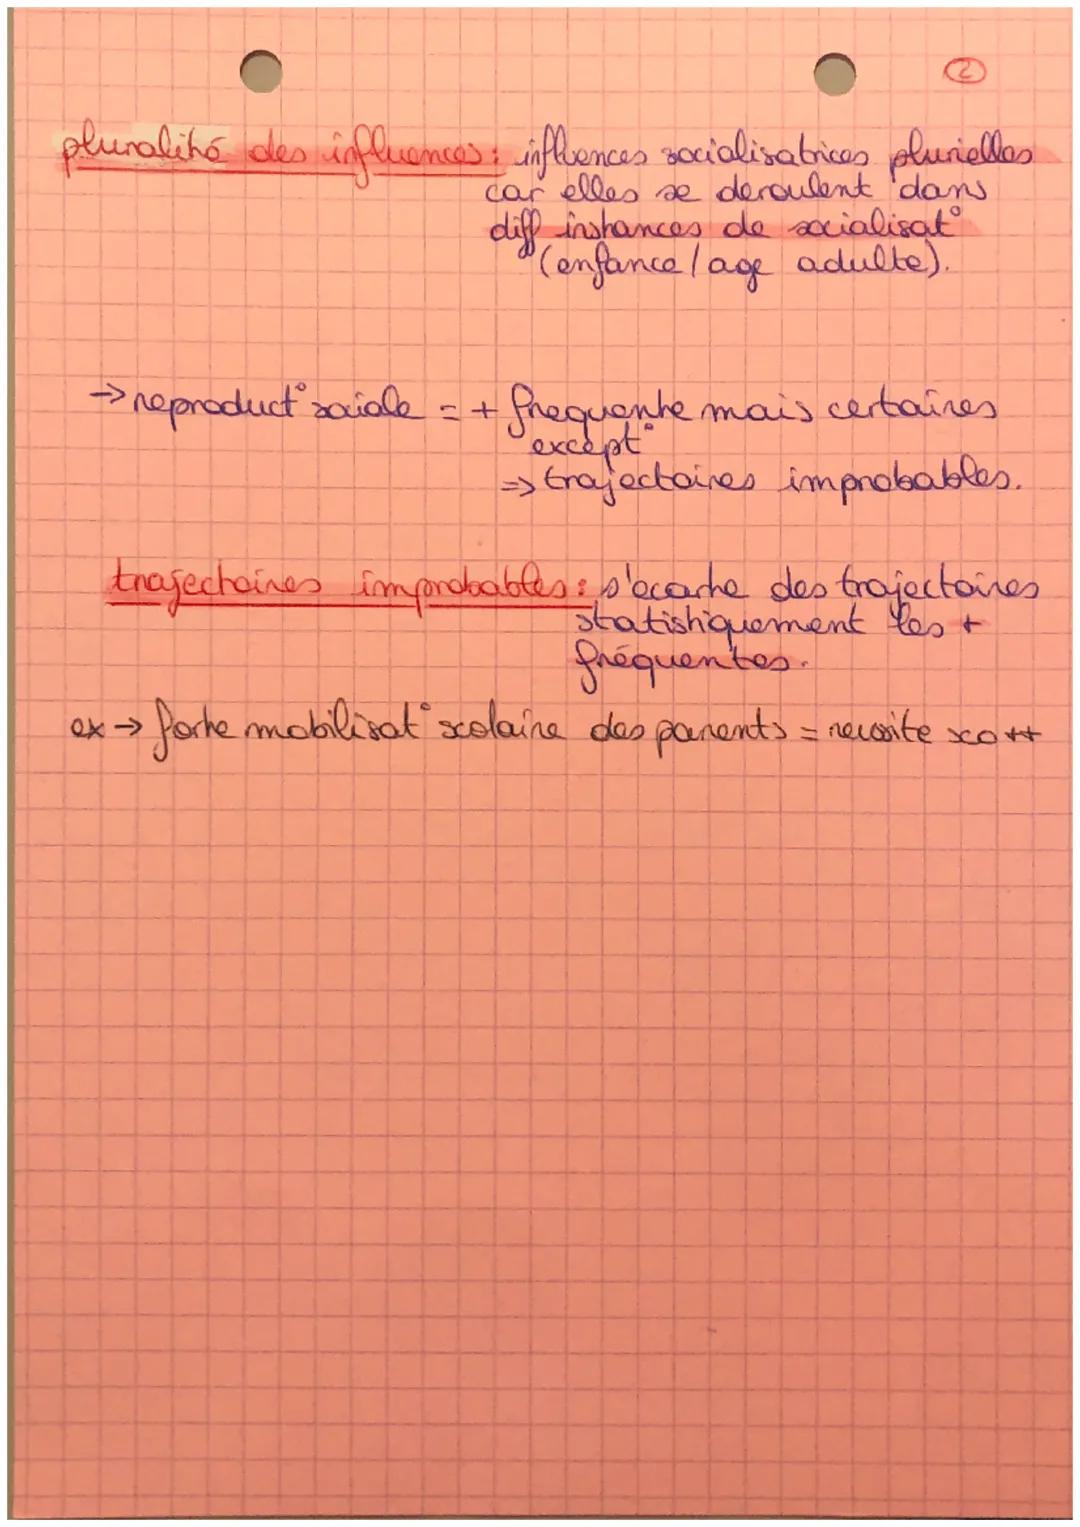 2
pluralité des influences : influences socialisatrices plurielles
car elles se deroulent dans
diff instances de socialisat°
(enfance / age adulte).
→ reproduct° sociale = + frequente mais certaines
except°
⇒ trajectoires improbables.
trajectoires improbables : s'ecarte des trajectoires
statistiquement les +
fréquentes.
ex → forte mobilisat° scolaire des parents = reussite sco ++